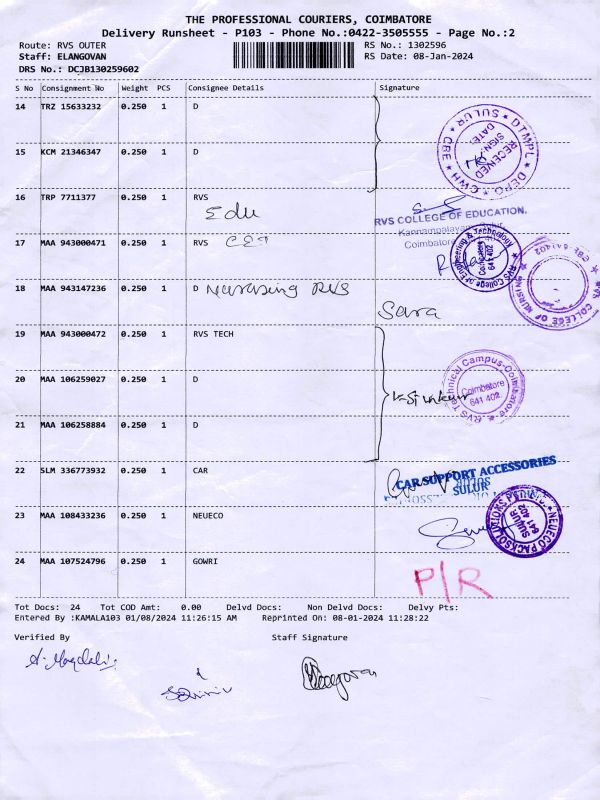 THE PROFESSIONAL COURIERS, COIMBATORE
Delivery Runsheet - P103 - Phone No.:0422-3505555 - Page No.:2
Route: RVS OUTER RS No.: 1302596
Staff: ELANGOVAN RS Date: 08-Jan-2024
DRS No.: DCJB130259602
S No Consignment No Weight PCS Consignee Details Signature
14 TRZ 15633232 0.250 1 D
SULUR * DTMPL * DEPO * CWH * CBE *
RECEIVED
SIGN.
DATE:
15 KCM 21346347 0.250 1 D
16 TRP 7711377 0.250 1 RVS
Edu
RVS COLLEGE OF EDUCATION,
Coimbatore
17 MAA 943000471 0.250 1 RVS CET
RVS College of Engineering & Technology
Coimbatore
641 402
COLLEGE OF NURSING * CBE-641402
18 MAA 943147236 0.250 1 D Narasing RVS
Sara
19 MAA 943000472 0.250 1 RVS TECH
RVS Technical Campus-Coimbatore
Coimbatore
641 402.
20 MAA 106259027 0.250 1 D
21 MAA 106258884 0.250 1 D
22 SLM 336773932 0.250 1 CAR
CAR SUPPORT ACCESSORIES
SULUR
23 MAA 108433236 0.250 1 NEUECO
NEUECO PACKSOLUTIONS
SULUR
641 402
24 MAA 107524796 0.250 1 GOWRI
P/R
Tot Docs: 24 Tot COD Amt: 0.00 Delvd Docs: Non Delvd Docs: Delvy Pts:
Entered By :KAMALA103 01/08/2024 11:26:15 AM Reprinted On: 08-01-2024 11:28:22
Verified By Staff Signature